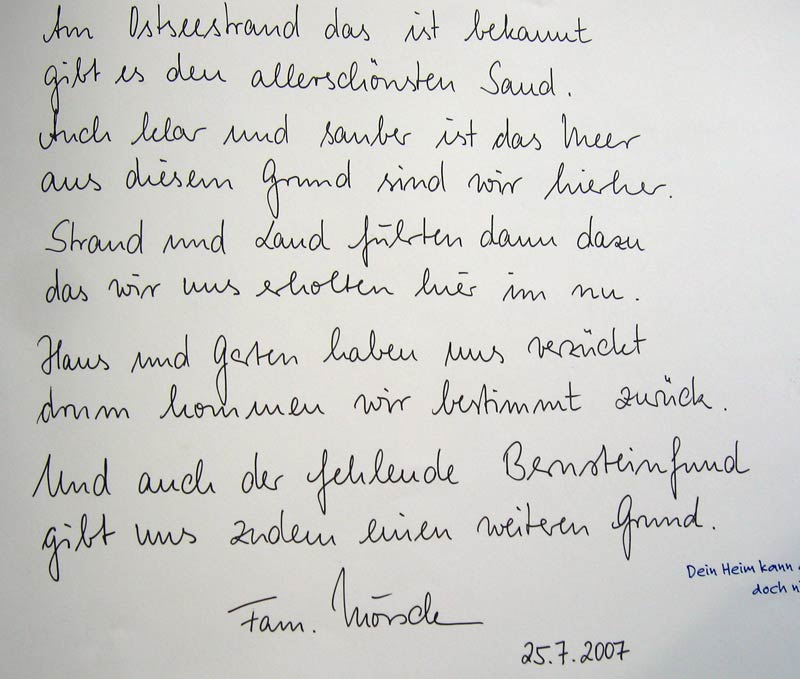 Am Ostseestrand das ist bekannt
gibt es den allerschönsten Sand.
Auch klar und sauber ist das Meer
aus diesem Grund sind wir hierher.
Strand und Land führten dann dazu
das wir uns erholten hier im nu.
Haus und Garten haben uns verzückt
drum kommen wir bestimmt zurück.
Und auch der fehlende Bernsteinfund
gibt uns zudem einen weiteren Grund.
Dein Heim kann
doch
Fam.
25.7.2007